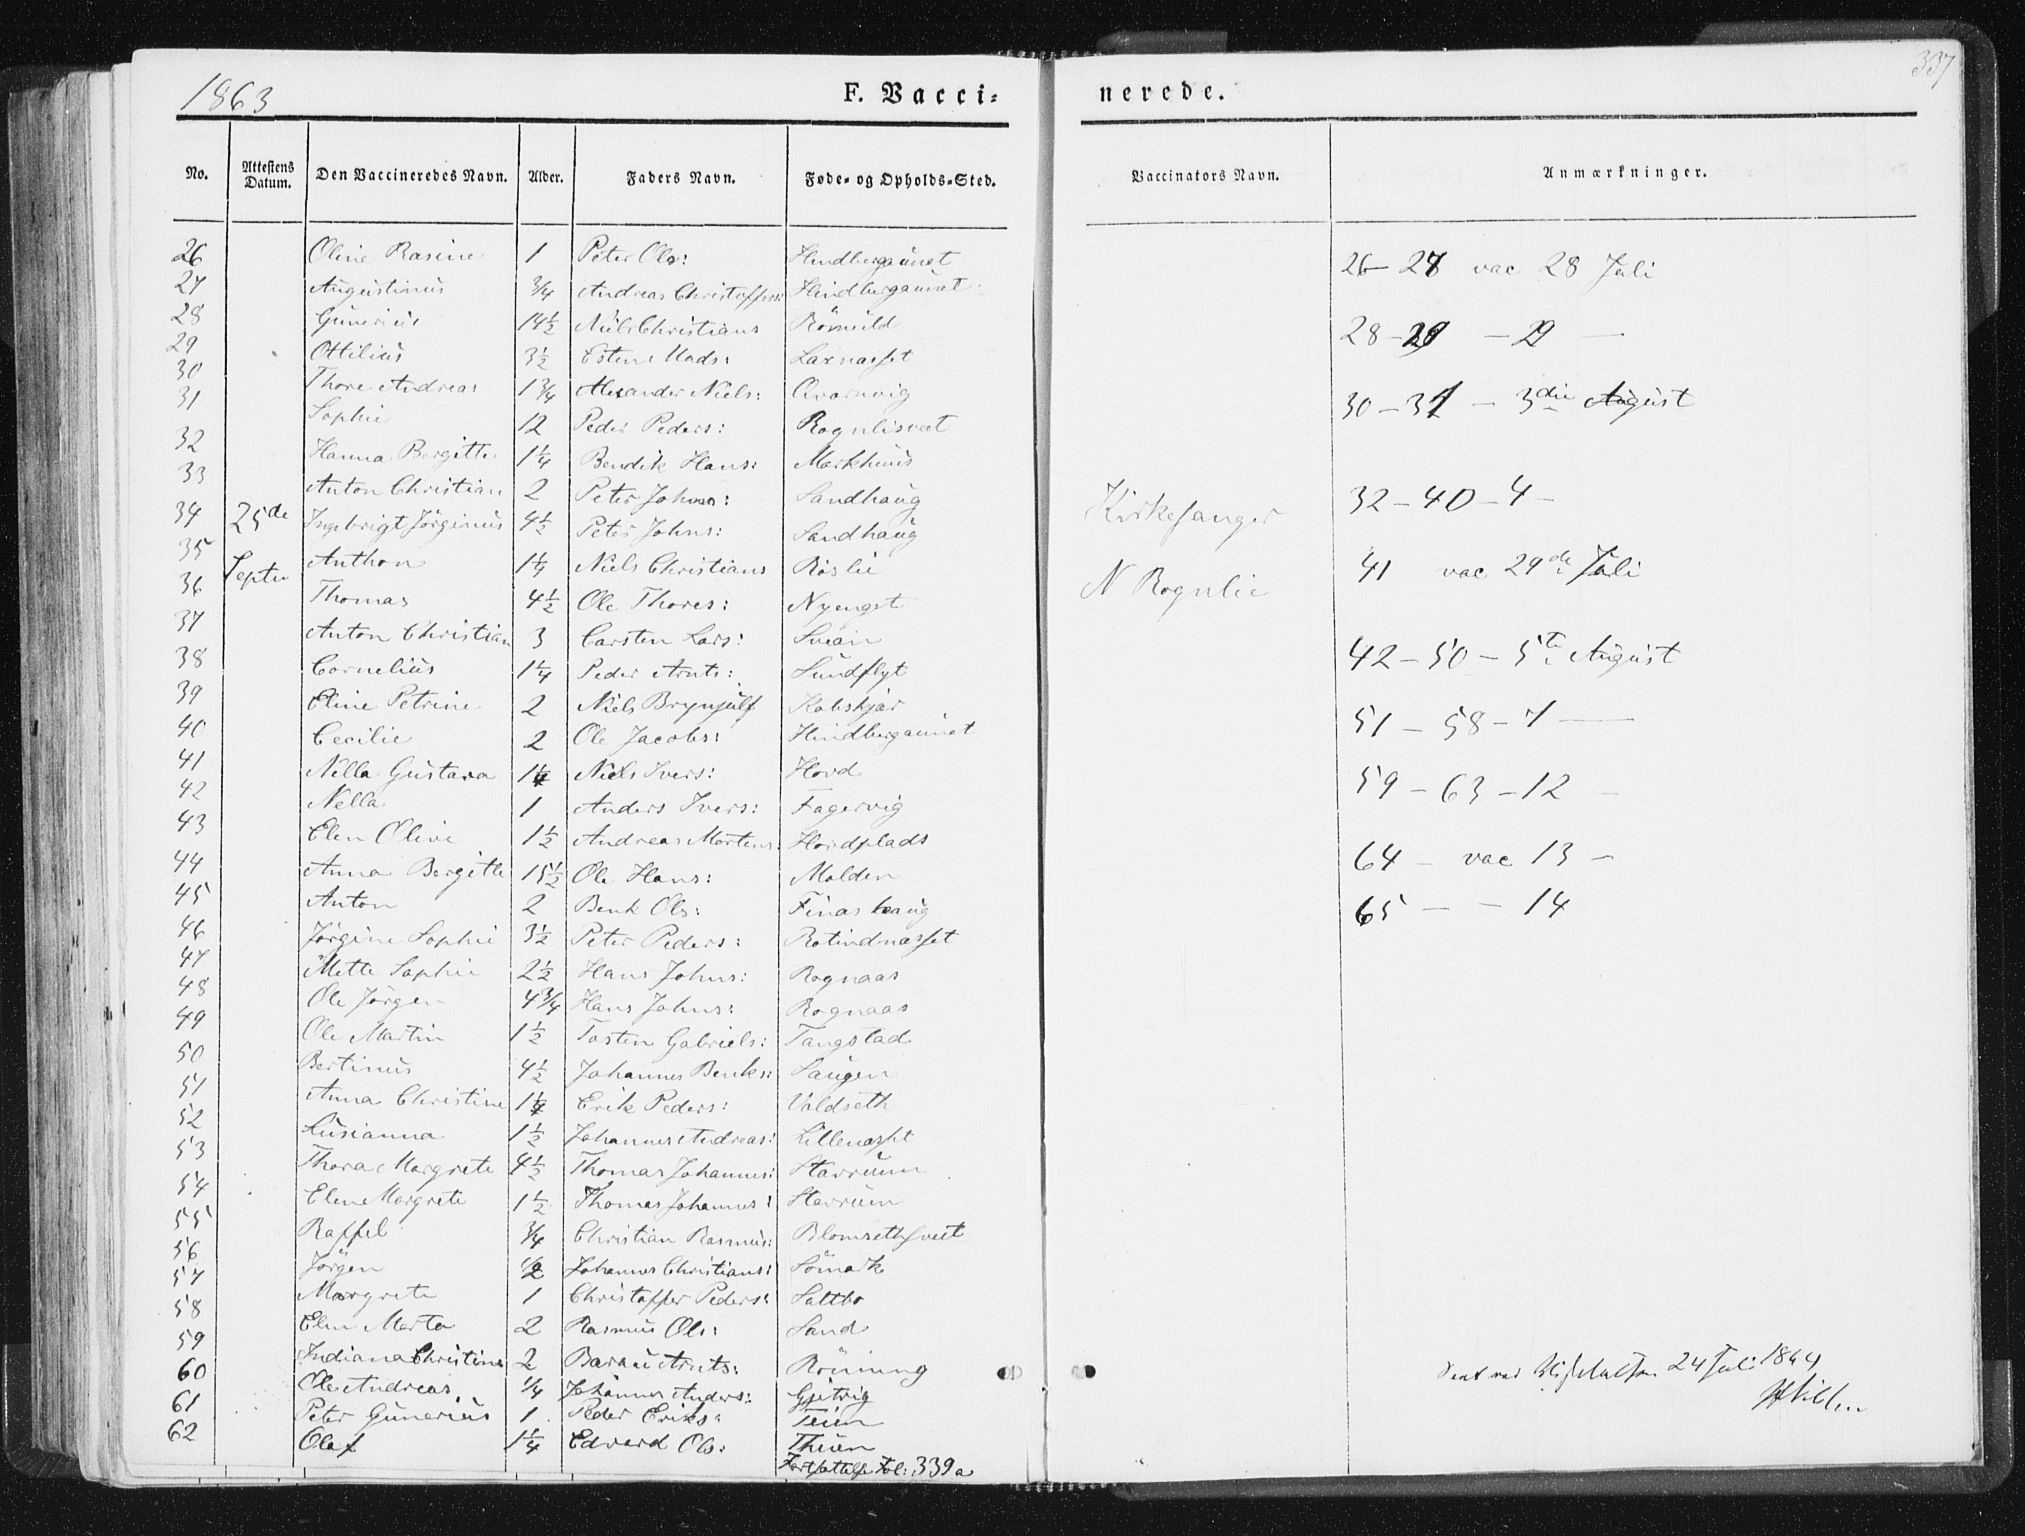 1863
F. Vacci=
nerede.
337
No. Attestens Datum. Den Vaccineredes Navn. Alder. Faders Navn. Føde- og Opholds-Sted. Vaccinators Navn. Anmærkninger.
26 Oline Rasine 1 Peter Ols: Hindbergaunet
27 Augustinus 3/4 Andreas Christoffers: Hindbergaunet
28 Gunerius 14 1/2 Niels Christians Römuld
29 Ottilius 3 1/2 Esten Mads: Laxnasset
30 Thore Andreas 1 3/4 Alexander Niels: Qvarnvig
31 Sophie 12 Peder Peders: Rognlisvet
32 Hanna Bergitte 1 1/4 Bendik Hans: Markhuus
33 Anton Christian 2 Peter Johns: Sandhaug
34 25de Ingebrigt Jörginus 4 1/2 Peter Johns: Sandhaug
35 Septe Anthon 1 1/4 Niels Christians Röslie
36 Thomas 4 1/2 Ole Thores: Nyengst
37 Anton Christian 3 Carsten Lars: Sveän
38 Cornelius 1 1/4 Peder Arnts: Sundflyt
39 Eline Petrine 2 Niels Brynjulf Kobskjær
40 Cecilie 2 Ole Jacobs: Hindbergaunet
41 Nella Gustava 1 1/4 Niels Ivers: Hovd
42 Nella 1 Anders Ivers: Fagervig
43 Elen Olive 1 1/2 Andreas Mortens: Hovdplads
44 Anna Bergitte 15 1/2 Ole Hans: Molden
45 Anton 2 Benk Ols: Finashaug
46 Jörgine Sophie 3 1/2 Peter Peders: Rotindnasset
47 Mette Sophie 2 1/2 Hans Johns: Rognaas
48 Ole Jörgen 4 3/4 Hans Johns: Rognaas
49 Ole Martin 1 1/2 Tosten Gabriels: Tangstad
50 Bertinus 4 1/2 Johannes Benks: Saugen
51 Anna Christine 1 1/4 Erik Peders: Valdseth
52 Lusianna 1 1/2 Johannes Andreas: Lillenasset
53 Thora Margrete 4 1/2 Thomas Johannes: Stavrum
54 Elen Margrete 1 1/2 Thomas Johannes: Stavrum
55 Raffel 3/4 Christian Rasmus: Blomsethsvet
56 Jörgen 1/2 Johannes Christians: Sömark
57 Margrete 1 Christopher Peders: Saltbo
58 Elen Marta 2 Rasmus Ols: Sand
59 Indiana Christine 2 Arnts: Röning
60 Ole Andreas 1/4 Johannes Anders: Gjetvig
61 Peter Gunerius 1 Peder Eriks: Teien
62 Olaf 1 1/4 Edvard Ols: Theien
Fortsættelse Fol: 339a
Kirkesanger
N Rognlie
26 - 27 vac 28 Juli
28 - 29 - 29 —
30 - 31 - 3die August
32 - 40 - 4 -
41 vac 29de Juli
42 - 50 - 5te August
51 - 58 - 7 —
59 - 63 - 12 -
64 - vac 13 -
65 - - 14
24 Juli 1864